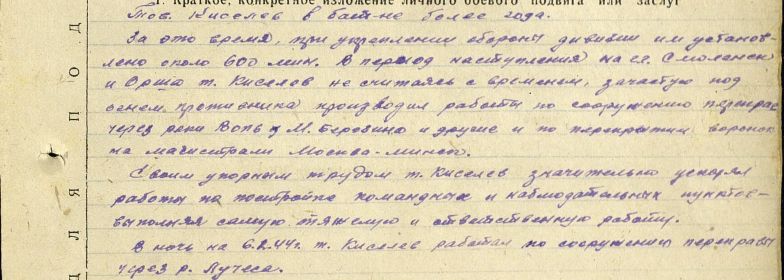 1. Краткое, конкретное изложение личного боевого подвига или заслуг
Тов. Киселев в бат-не более года.
За это время, при укреплении обороны дивизии им установ-
лено около 600 мин. В период наступления на гг. Смоленск
и Орша т. Киселев не считаясь с временем, зачастую под
огнем противника производил работы по сооружению переправ
через реки Вопь, М. Березина и другие и по перекрытию воронок
на магистрали Москва-Минск.
Своим упорным трудом т. Киселев значительно ускорял
работы по постройке командных и наблюдательных пунктов-
выполняя самую тяжелую и ответственную работу.
В ночь на 6.2.44г. т. Киселев работал по сооружению переправы
через р. Лучеса.
ДЛЯ ПОД